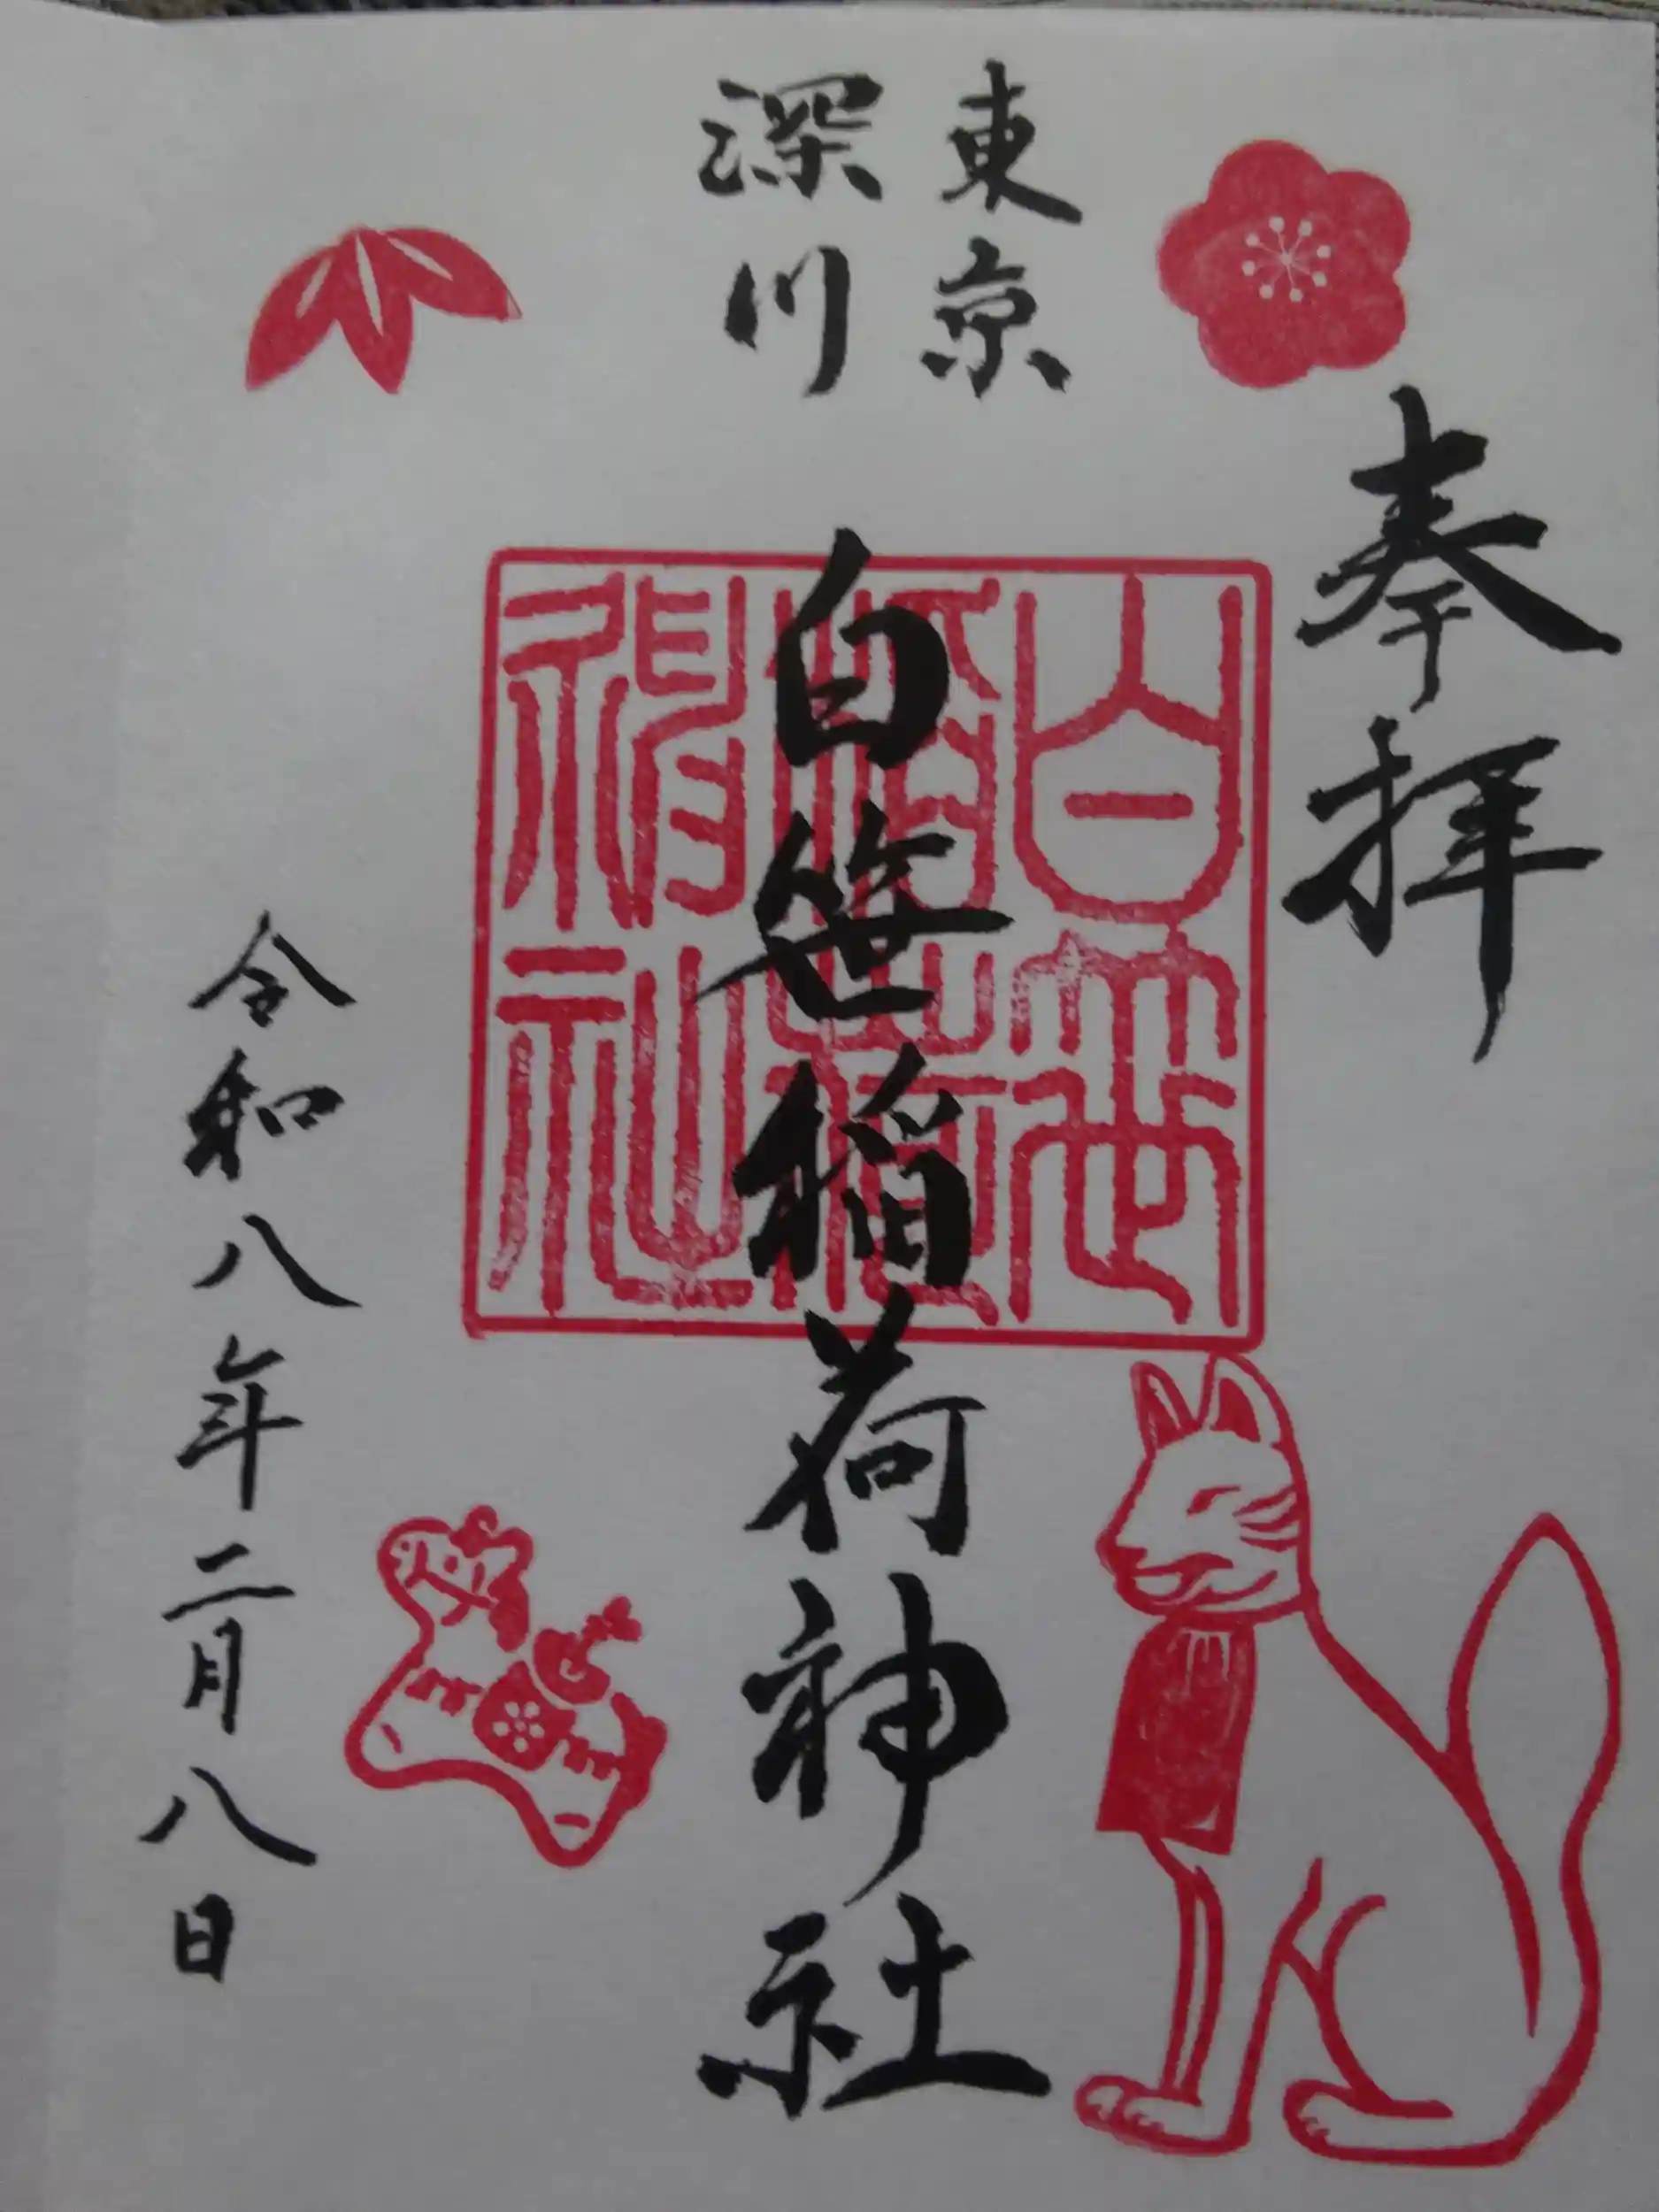 奉拝
東京
深川
白笹稲荷神社
白笹稲荷神社
令和八年二月八日